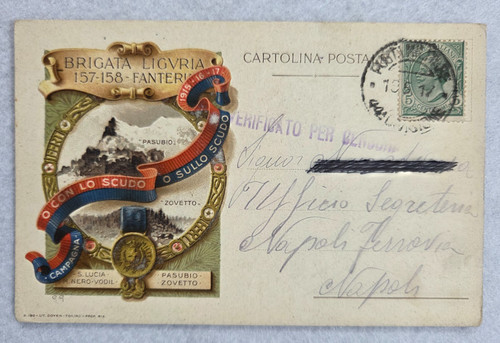 BRIGATA LIGURIA
157-158-FANTERIA
1915-16-17
O CON LO SCUDO O SULLO SCUDO
CAMPAGNA
LIBERI
PASUBIO
ZOVETTO
S. LUCIA
M. NERO-VODIL
PASUBIO-
ZOVETTO
CARTOLINA POSTA
VERIFICATO PER CENSURA
5 5
Signor
Ufficio Segreteria
Napoli Ferrovia
Napoli